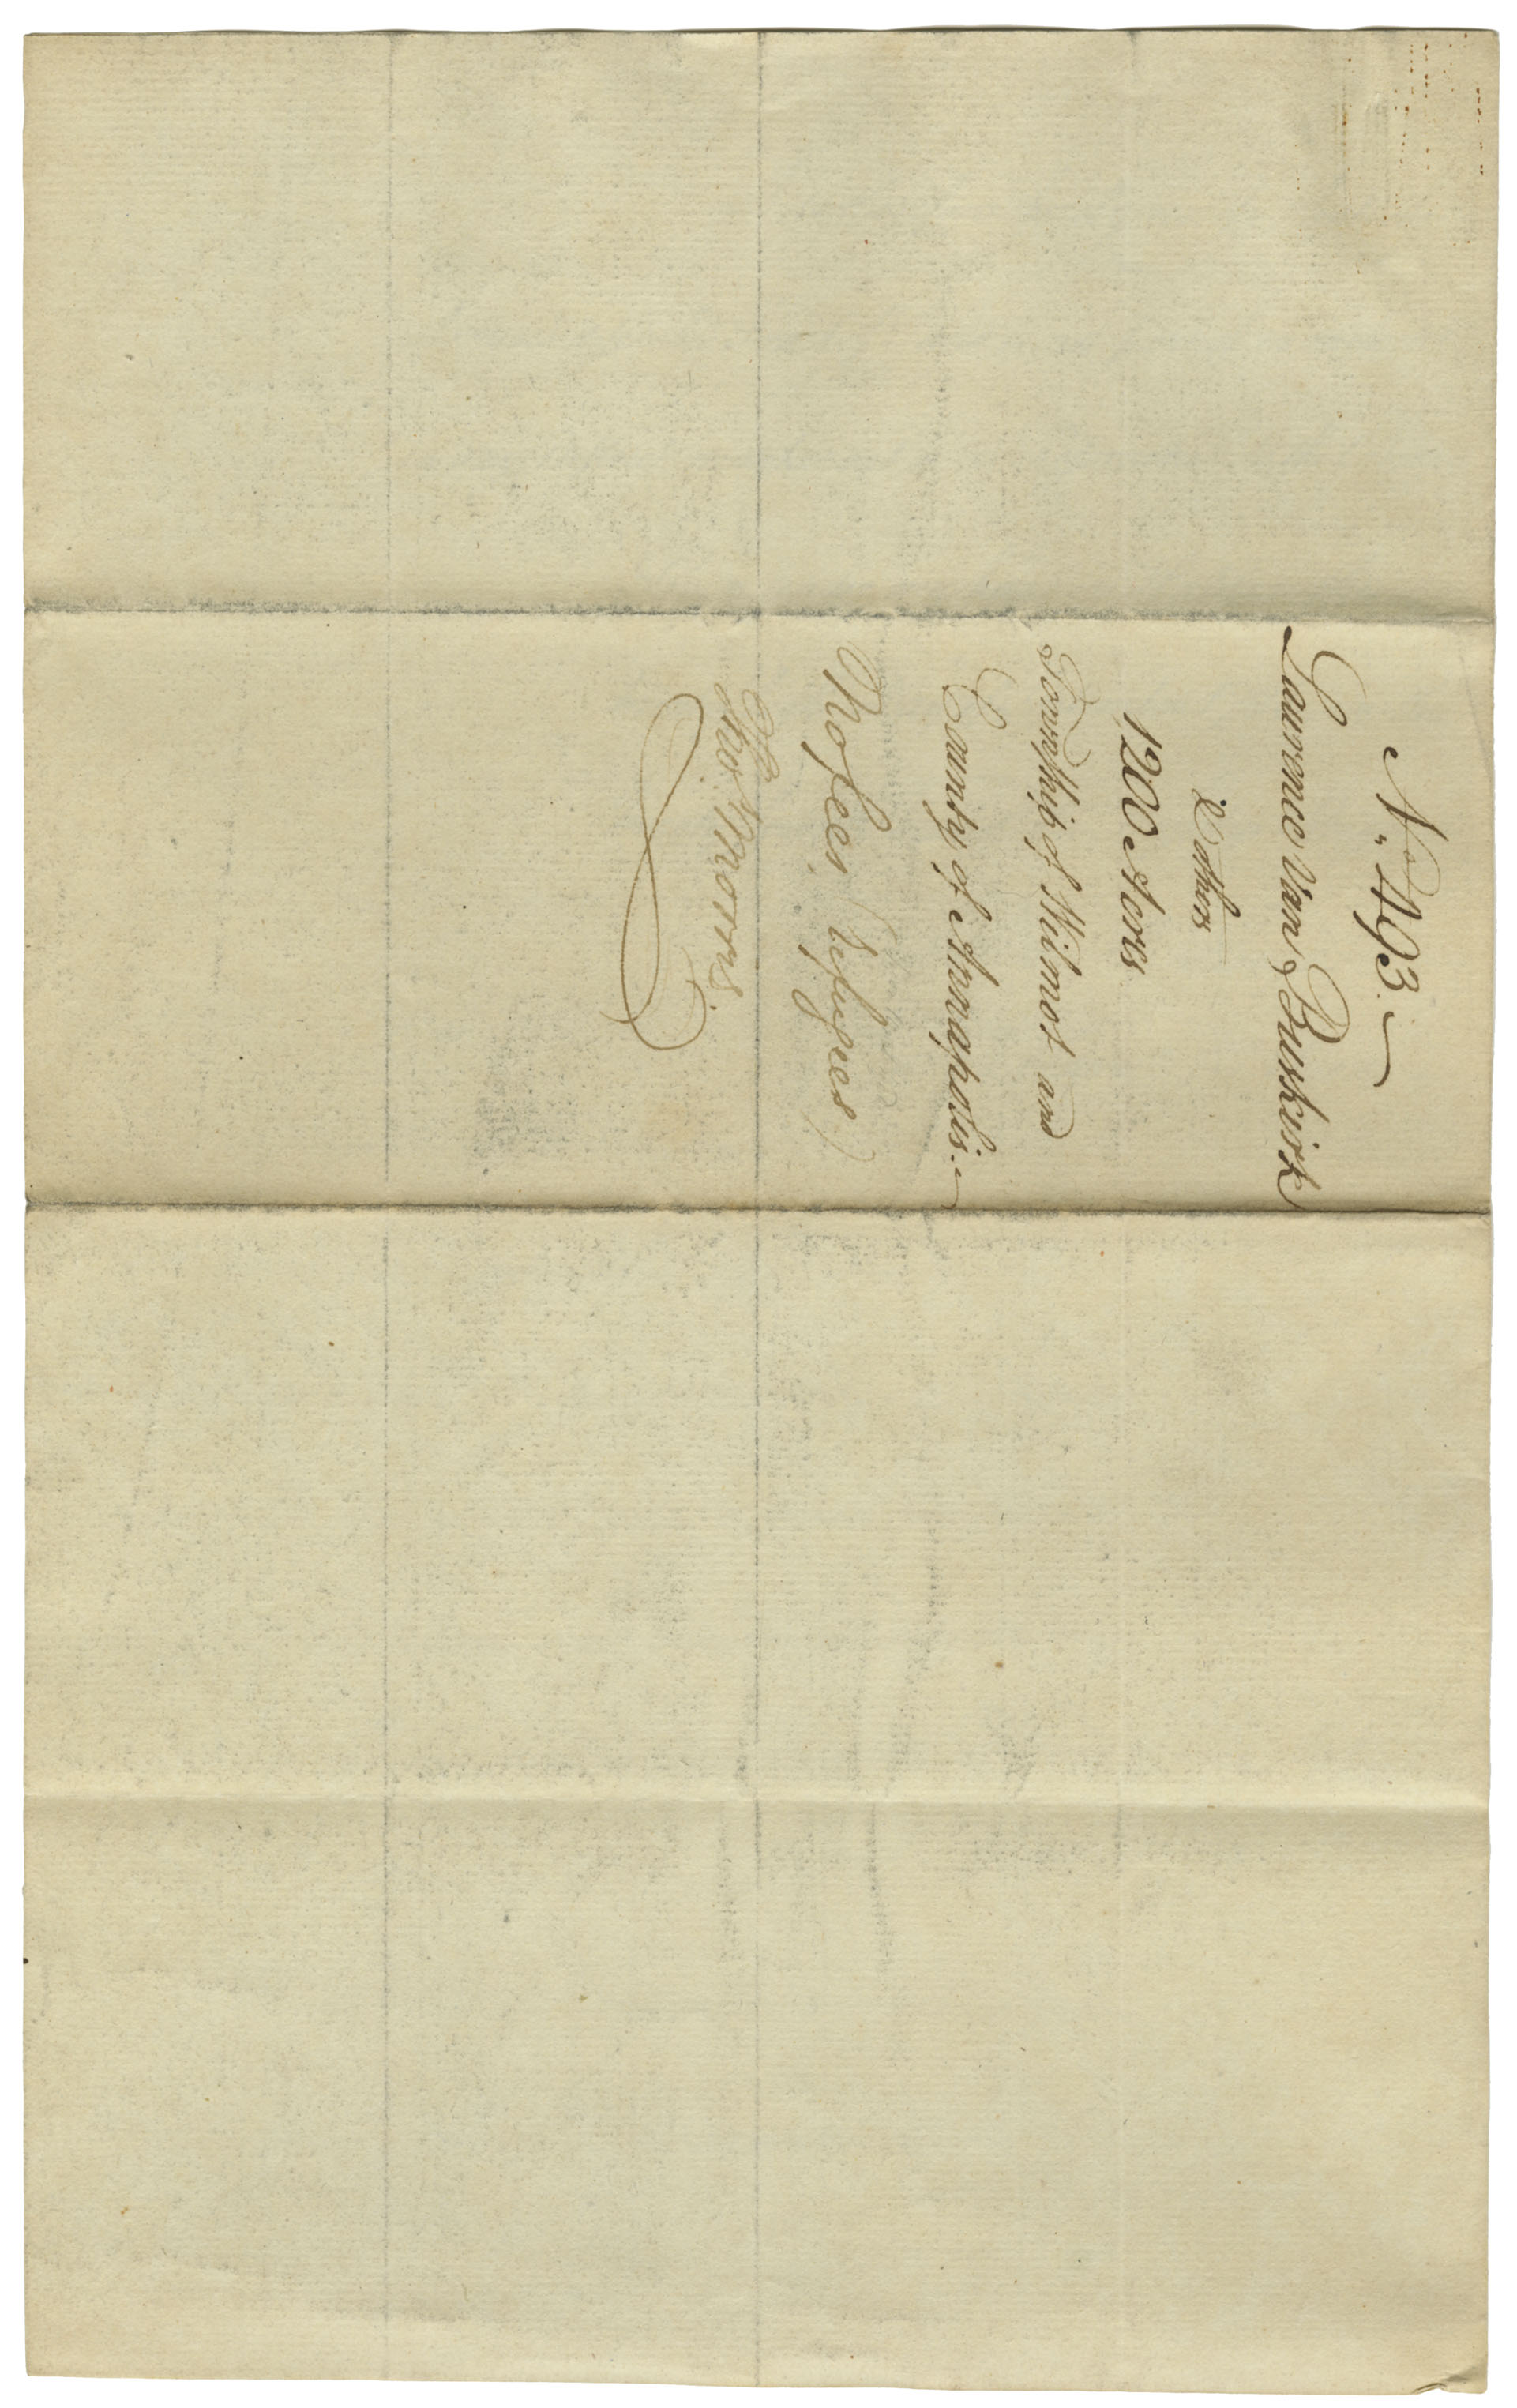 N. 493.
Laurence Van Buskirk
& others
1200 Acres
Township of Wilmot and
County of Annapolis.
No fees, (refugees)
Chs. Morris.